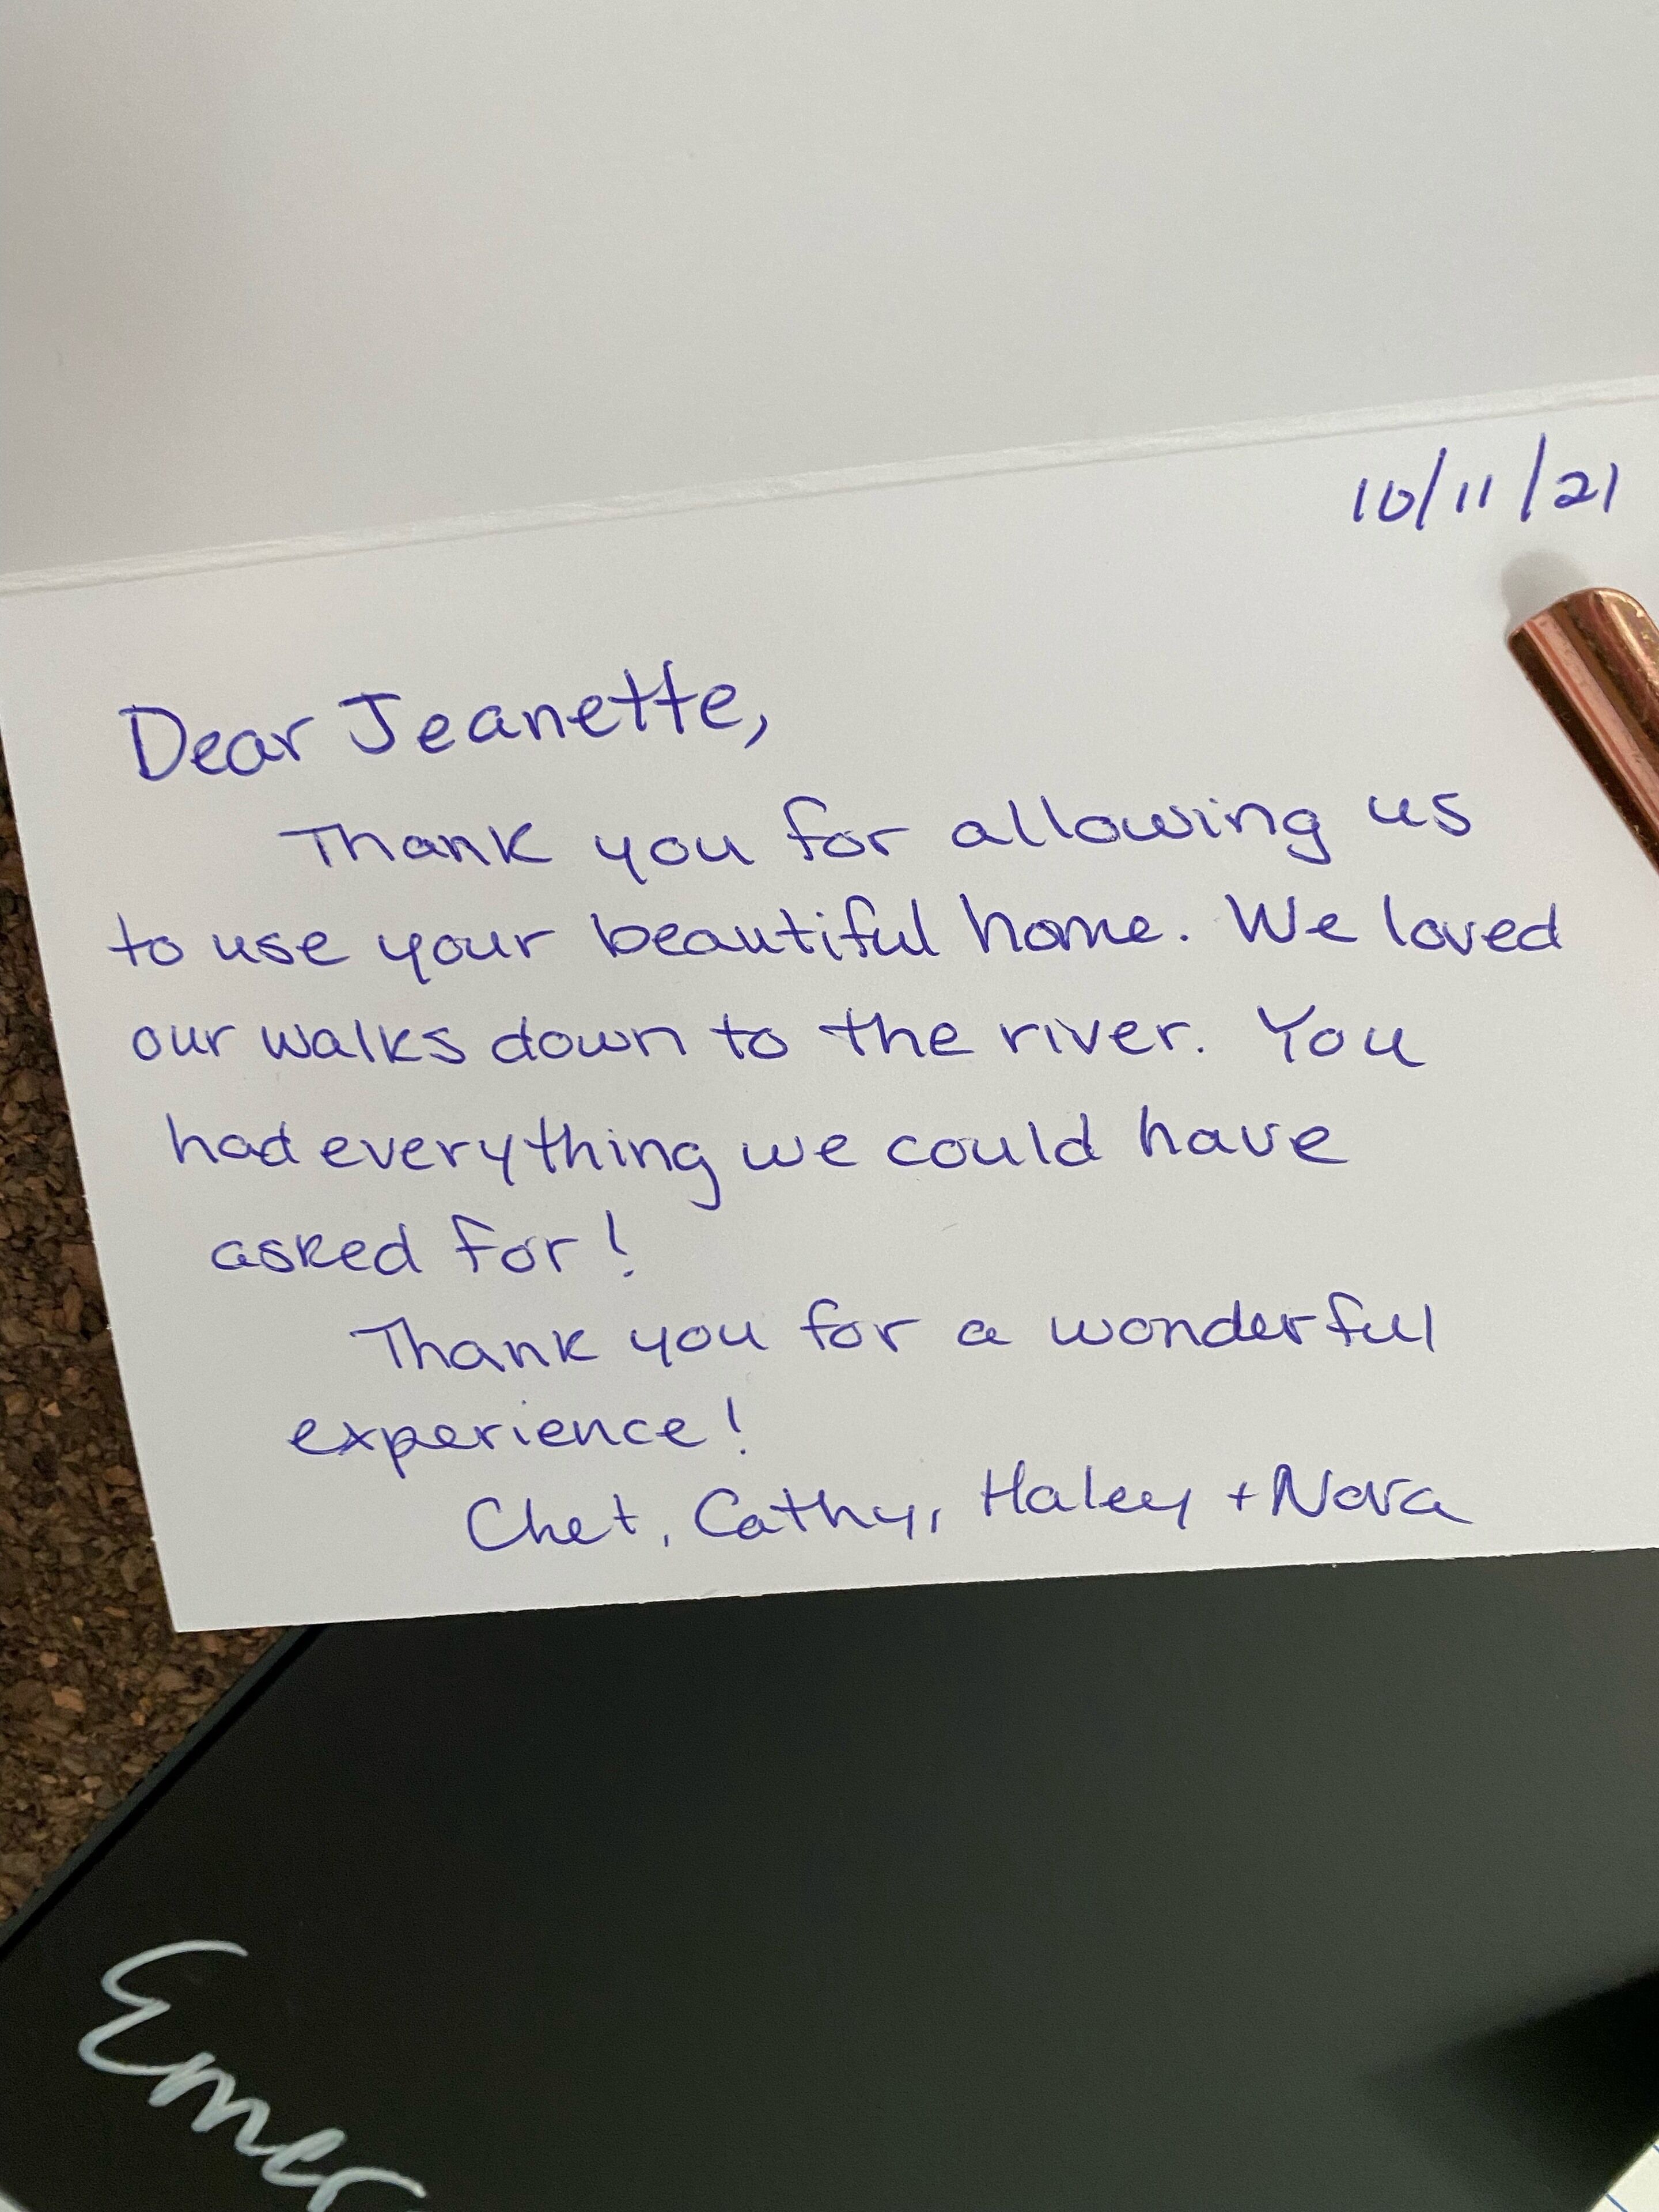 10/11/21
Dear Jeanette,
Thank you for allowing us
to use your beautiful home. We loved
our walks down to the river. You
had everything we could have
asked for!
Thank you for a wonderful
experience!
Chet, Cathy, Haley + Nora
Emer